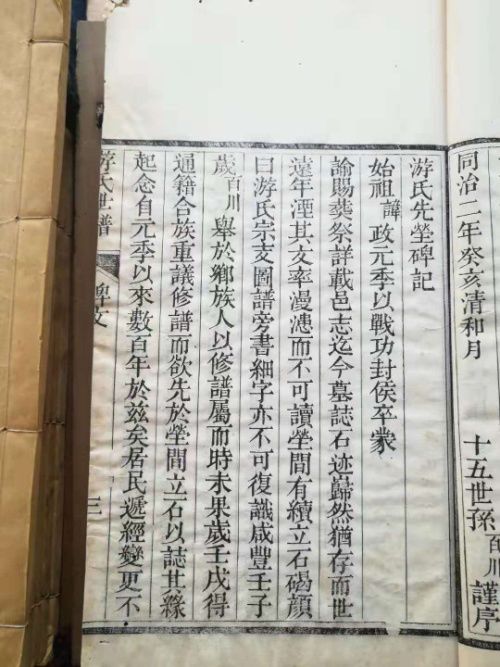 同治二年癸亥清和月
十五世孫百川謹序
游氏先塋碑記
始祖諱政元季以戰功封侯卒蒙
諭賜葬祭詳載邑志迄今墓誌石迹巋然猶存而世
遠年湮其文率漫漶而不可讀塋間有續立石碣顏
曰游氏宗支圖譜旁書細字亦不可復識咸豐壬子
歲百川舉於鄉族人以修譜屬而時未果歲壬戌得
通籍合族重議修譜而欲先於塋間立石以誌其緣
起念自元季以來數百年於茲矣居民遞經變更不
游氏世譜
碑文
三